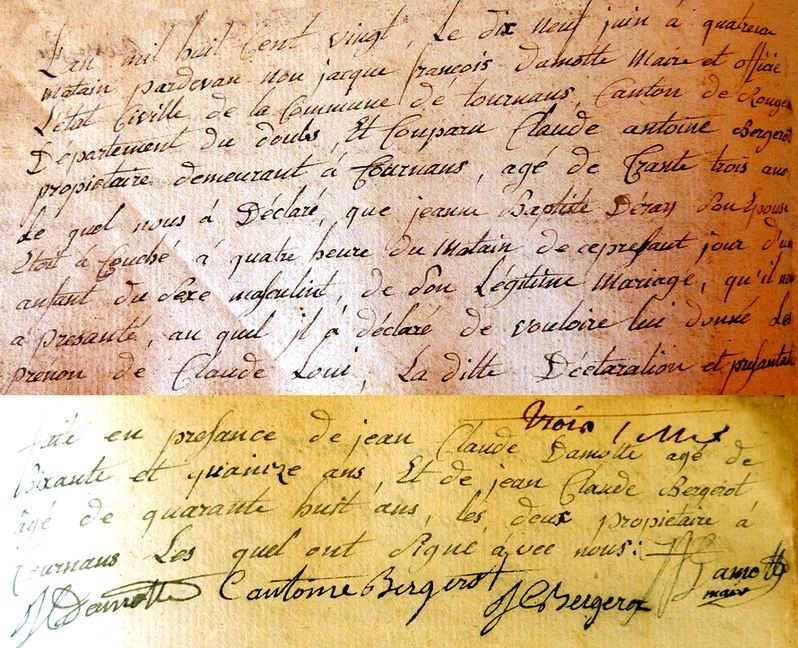 L'an mil huit Cent vingt, Le dix neuf juin à quatreu
matain pardevan nou jacque françois Damotte Maire et offici
L'état Civille de la Commune de tournans, Canton de Rouge
Département du doubs, Et Conparu Claude antoine Bergerot
propietaire demeurant à tournans, agé de Trante trois ans
Le quel nous à Déclaré, que jeanne Baptiste Déray Son Epouse
Etoit à Couché à quatre heure du Matain de ce present jour d'un
anfant du Sexe masculint, de Son Légitime Mariage, qu'il nou
a presanté, au quel il à déclaré de vouloire lui donné Les
prénon de Claude Loui, La ditte Déclaration et presantat
Trois
faite en presance de jean Claude Damotte agé de
Soixante et quainze ans, Et de jean Claude Bergerot
âgé de quarante huit ans, les deux propietaire à
tournans Les quel ont Signé àvec nous:
JC Damotte C antoine Bergerot JC Bergerot Damotte
maire